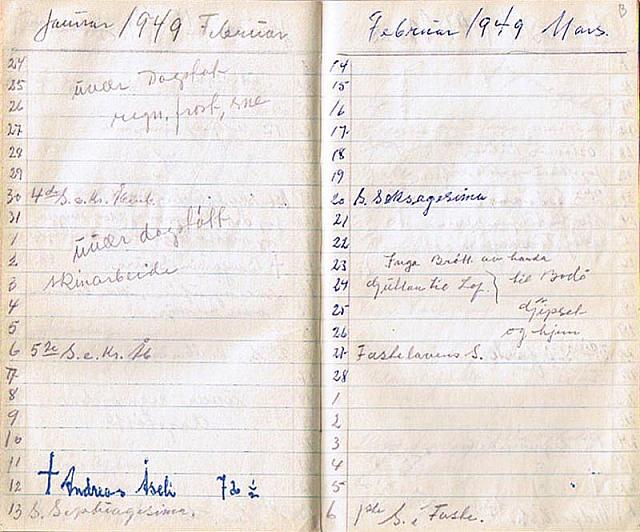 Januar 1949 Februar
24
25 under Dagstøtt
26 regn, frost, sne
27
28
29
30 4de S. e. Kr. Åb.
31
1 under dagstøtt
2
3 skinarbeide
4
5
6 5te S. e. Kr. Åb
7
8
9
10
11
12 † Andreas Åseli 7 to
13 S. Septuagesima.
Februar 1949 Mars.
14
15
16
17
18
19
20 S. Seksagesima
21
22
23 Inga Brått
24 til Bodö
25
26 og hjem
27 Fastelavens S.
28
1
2
3
4
5
6 1ste S. i Faste.